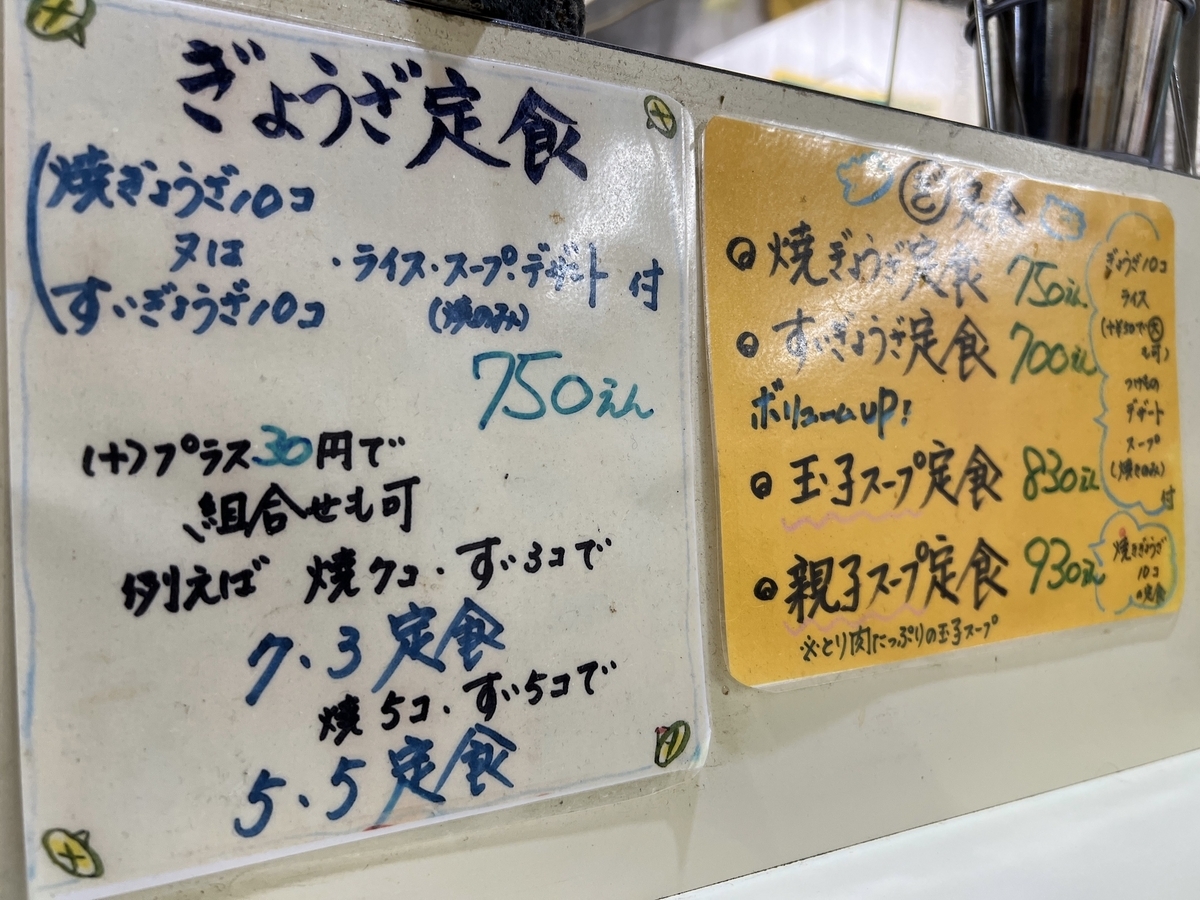 ぎょうざ定食
焼ぎょうざ10コ
又は
すいぎょうざ10コ
・ライス・スープ・デザート 付
(焼のみ)
750えん
(+)プラス30円で
組合せも可
例えば 焼7コ・すい3コで
7・3定食
焼5コ・すい5コで
5・5定食
定食
焼ぎょうざ定食 750えん
すいぎょうざ定食 700えん
ボリュームup!
玉子スープ定食 830えん
親子スープ定食 930えん
※とり肉たっぷりの玉子スープ
ぎょうざ10コ
ライス
(+¥50で大
も可)
つけもの
デザート
スープ
(焼きのみ)
付
焼きぎょうざ
10コ
の定食